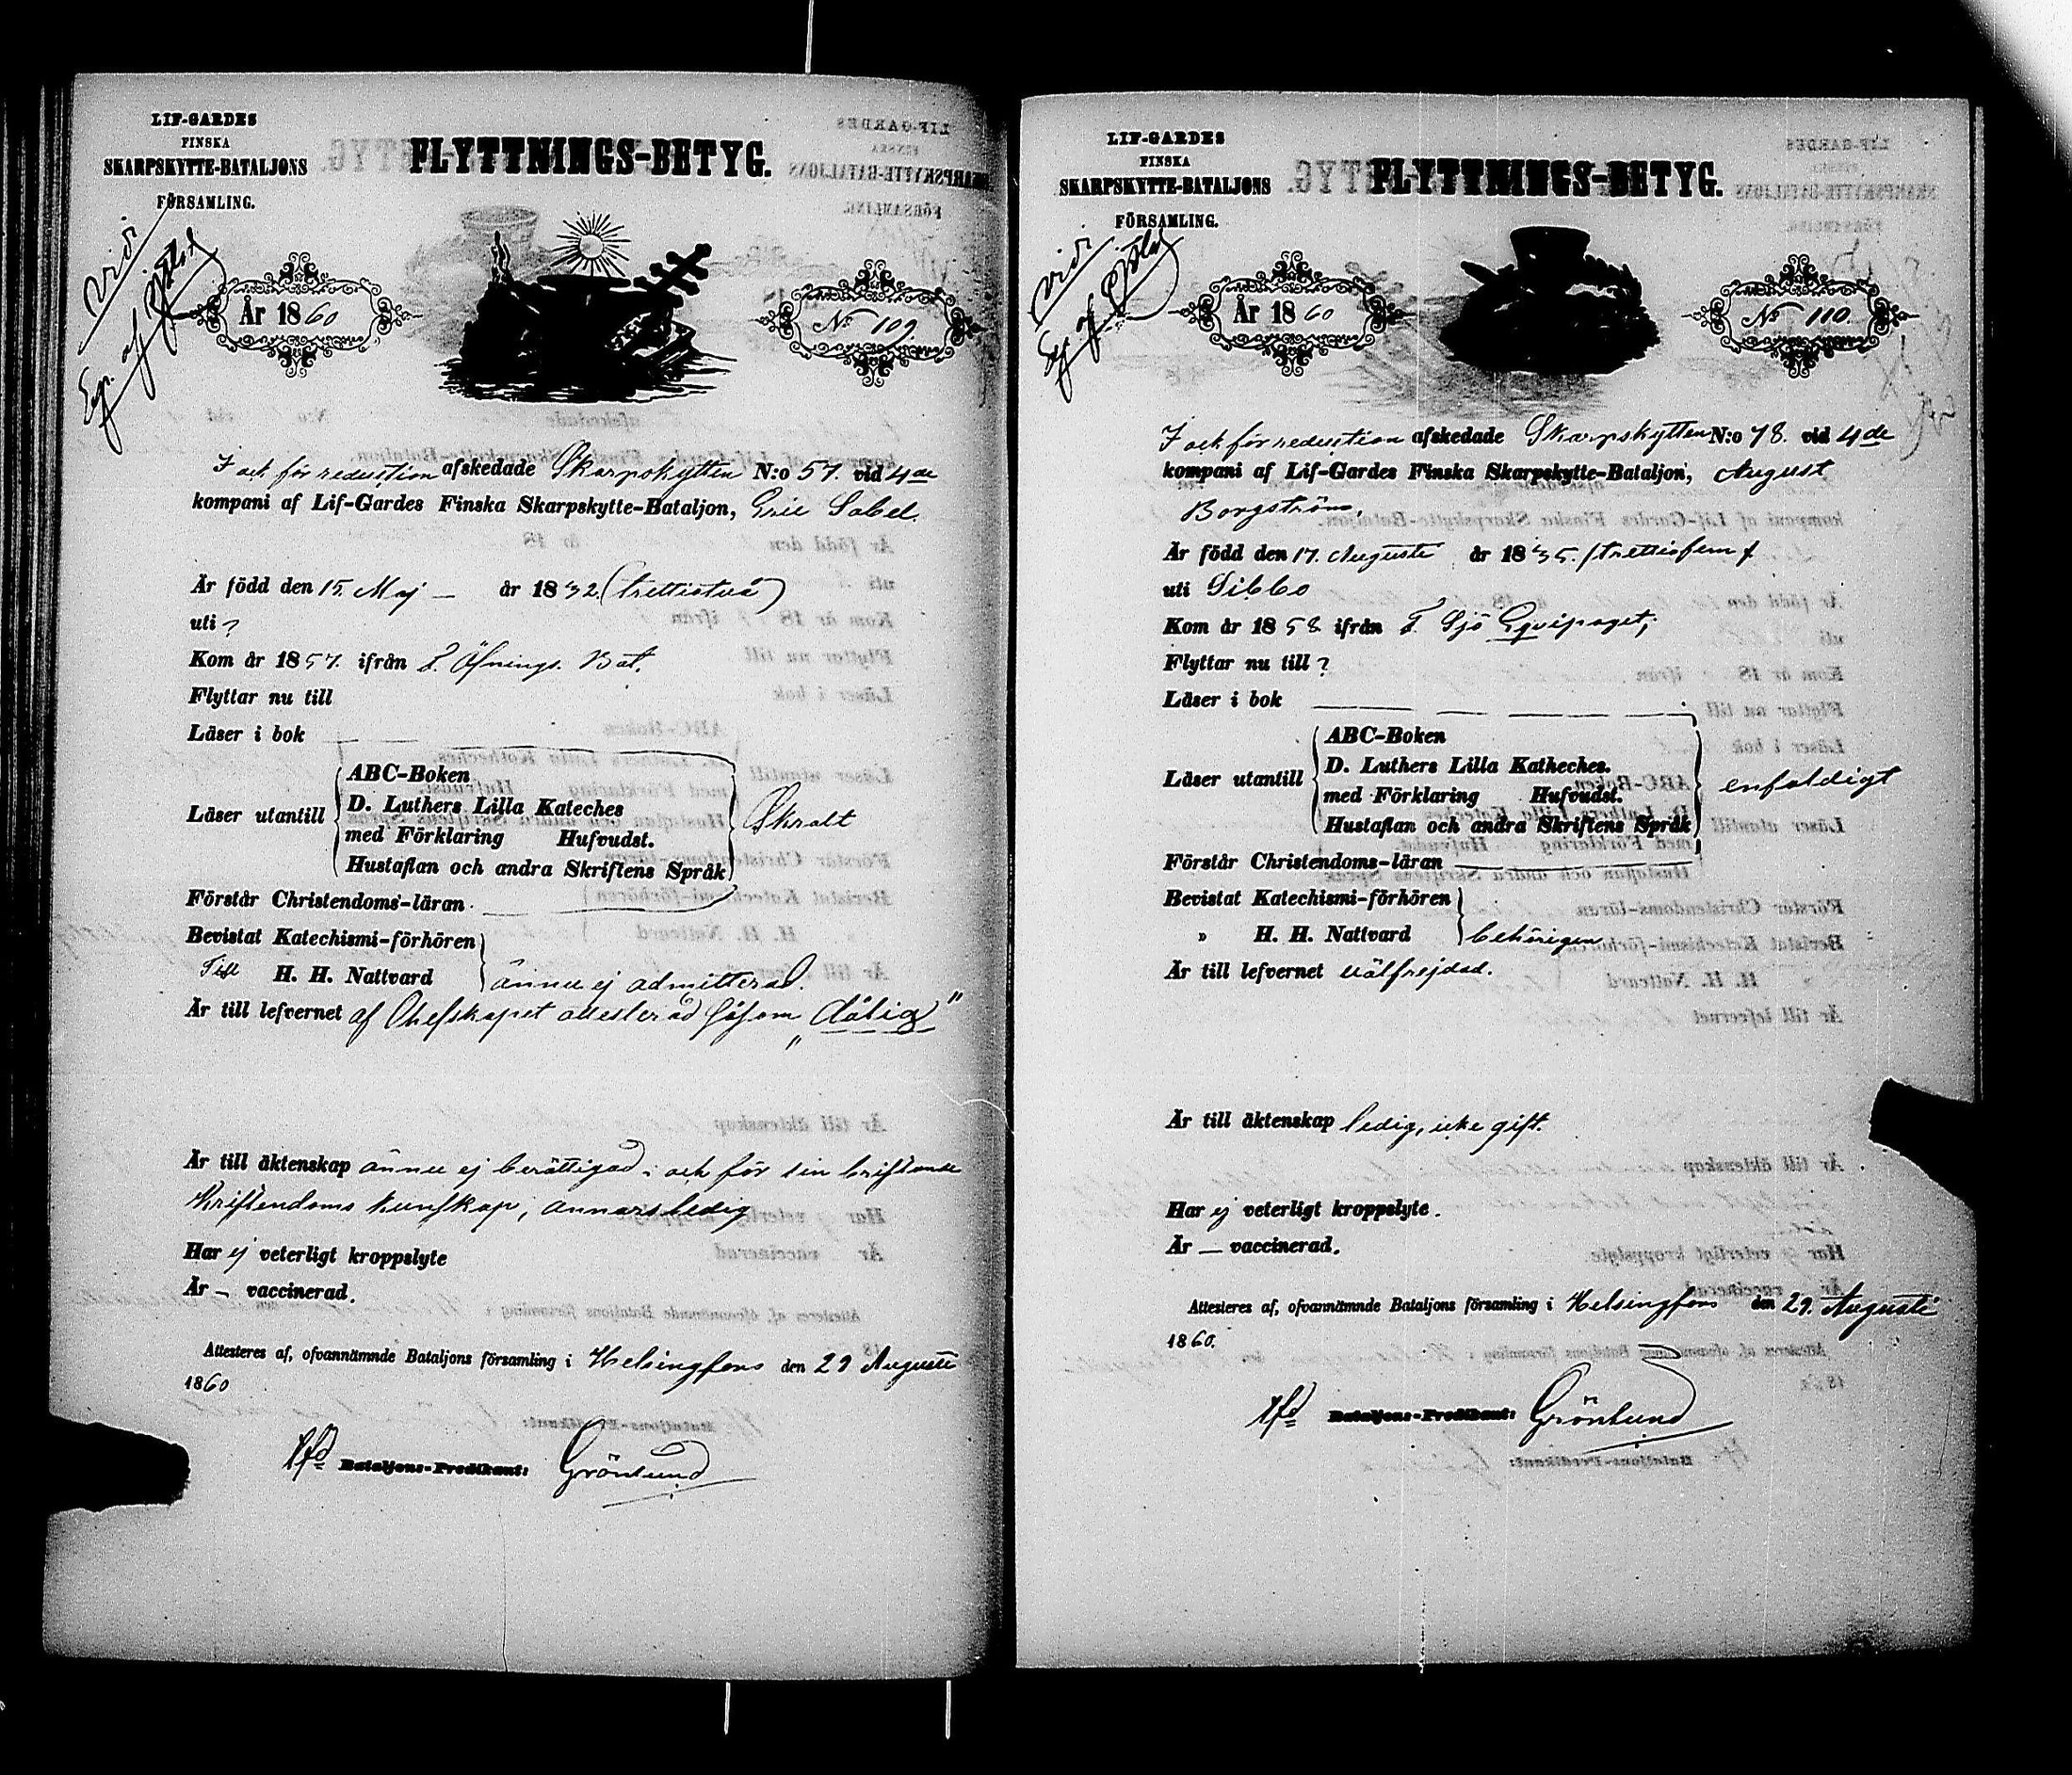 LIF-GARDES
FINSKA
SKARPSKYTTE-BATALJONS
FÖRSAMLING.
FLYTTNINGS-BETYG.
vidi
År 1860
No 109
I och för reduction afskedade Skarpskytten N:o 57. vid 4de
kompani af Lif-Gardes Finska Skarpskytte-Bataljon, Eric Sabel.
Är född den 15. Maj — år 1832. (trettiotvå)
uti ?
Kom år 1857. ifrån F. Öfnings. Bat.
Flyttar nu till
Läser i bok
Läser utantill
ABC-Boken
D. Luthers Lilla Kateches
med Förklaring Hufvudst.
Hustaflan och andra Skriftens Språk
Skralt
Förstår Christendoms-läran
Bevistat Katechismi-förhören
Till H. H. Nattvard
ännu ej admitterad.
Är till lefvernet af Chefskapet attesterad såsom „dålig"
Är till äktenskap ännu ej berättigad i och för sin bristande
Kristendoms kunskap, annars ledig
Har ej veterligt kroppslyte
Är — vaccinerad.
Attesteras af, ofvannämnde Bataljons församling i Helsingfors den 29 Augusti
1860
Bataljons-Predikant: Grönlund
LIF-GARDES
FINSKA
SKARPSKYTTE-BATALJONS
FÖRSAMLING.
FLYTTNINGS-BETYG.
vidi
År 1860
No 110.
I och för reduction afskedade Skarpskytten N:o 78. vid 4de
kompani af Lif-Gardes Finska Skarpskytte-Bataljon, August
Borgström,
Är född den 17. Augusti år 1835. (trettiofem)
uti Sibbo
Kom år 1858 ifrån F. Sjö Eqvipaget;
Flyttar nu till ?
Läser i bok
Läser utantill
ABC-Boken
D. Luthers Lilla Katheches.
med Förklaring Hufvudst.
Hustaflan och andra Skriftens Språk
enfaldigt
Förstår Christendoms-läran
Bevistat Katechismi-förhören
» H. H. Nattvard
behörigen
Är till lefvernet välfrejdad.
Är till äktenskap ledig, icke gift.
Har ej veterligt kroppslyte.
Är — vaccinerad.
Attesteres af, ofvannämnde Bataljons församling i Helsingfors den 29. Augusti
1860.
Bataljons-Predikant: Grönlund